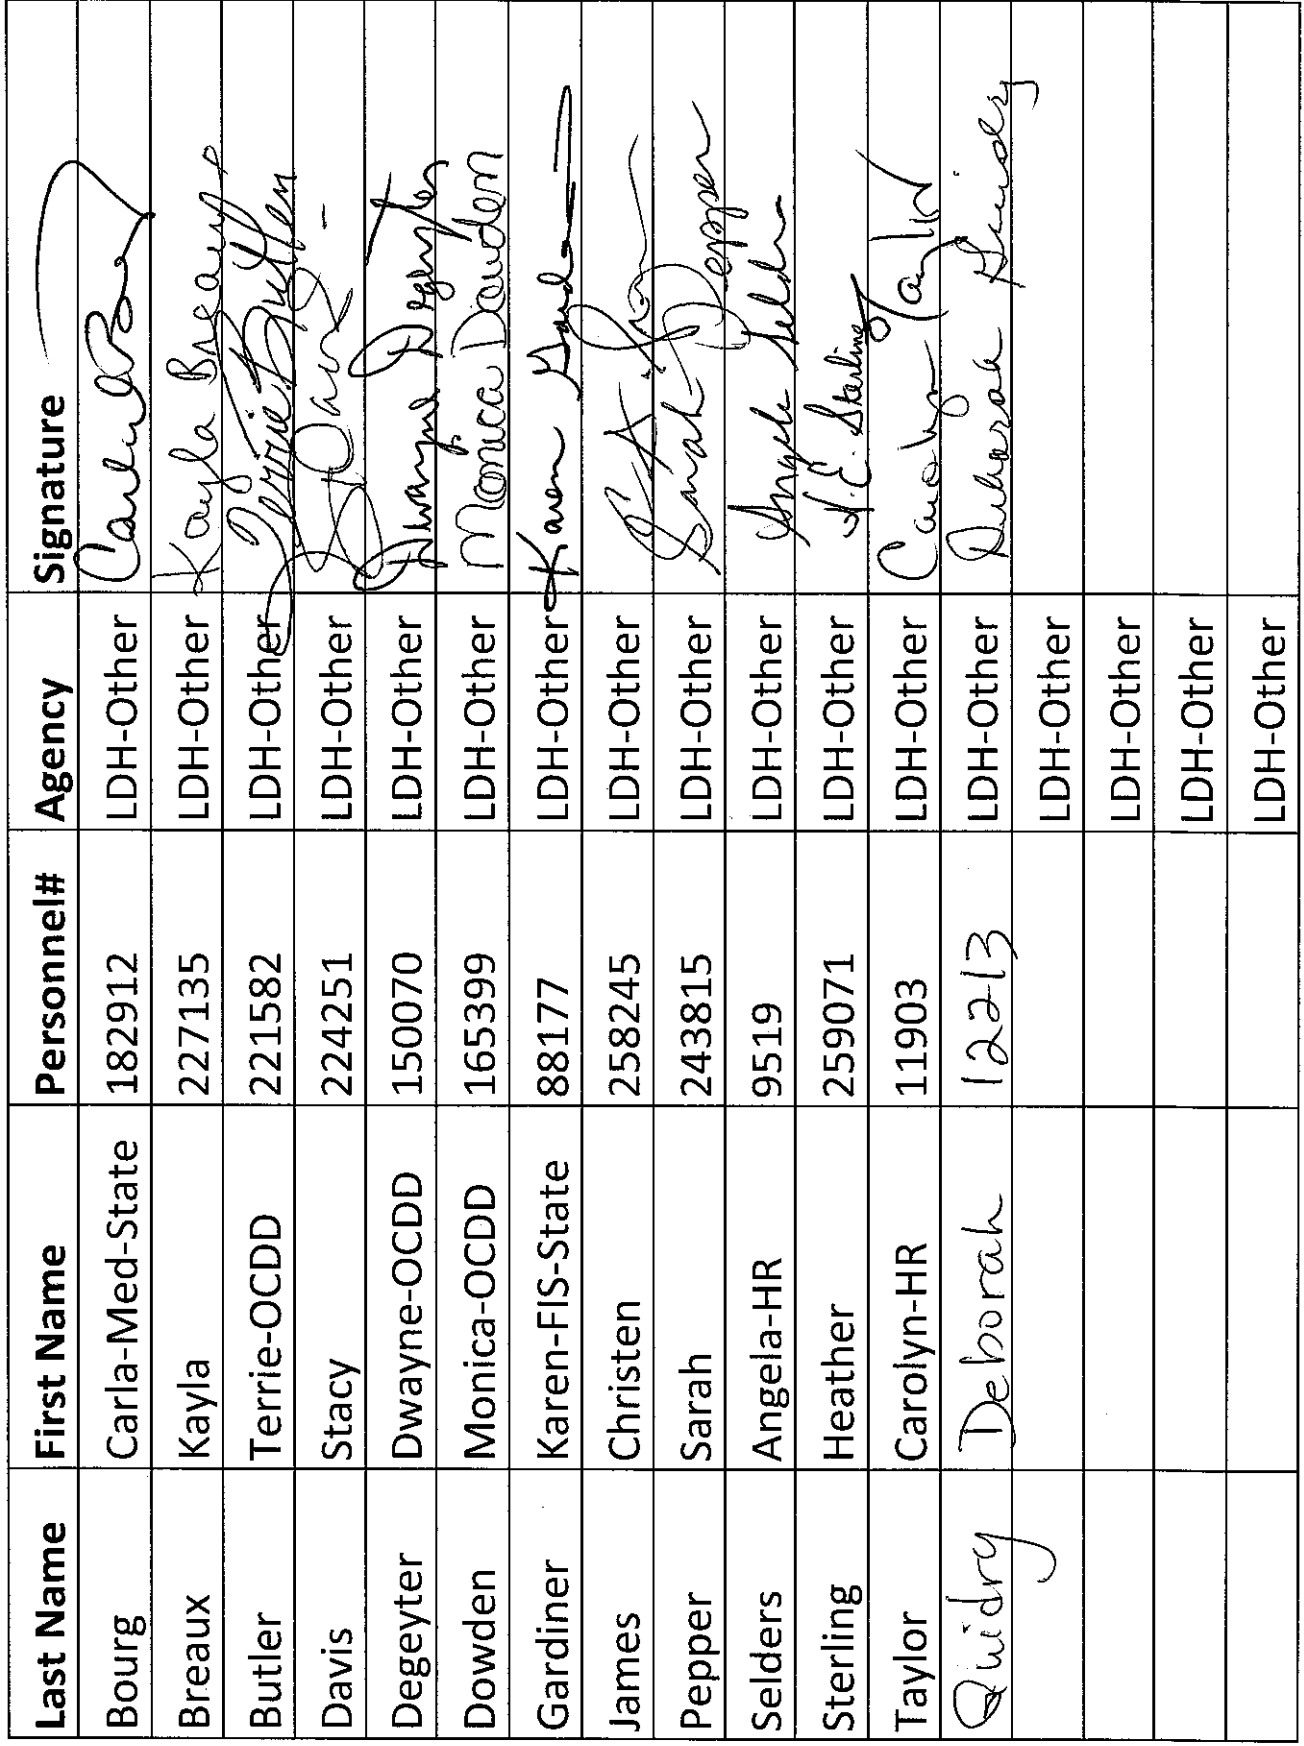 Last Name First Name Personnel# Agency Signature
Bourg Carla-Med-State 182912 LDH-Other
Breaux Kayla 227135 LDH-Other Kayla Breaux
Butler Terrie-OCDD 221582 LDH-Other Terrie Butler
Davis Stacy 224251 LDH-Other S Davis
Degeyter Dwayne-OCDD 150070 LDH-Other Dwayne Degeyter
Dowden Monica-OCDD 165399 LDH-Other Monica Dowden
Gardiner Karen-FIS-State 88177 LDH-Other Karen
James Christen 258245 LDH-Other
Pepper Sarah 243815 LDH-Other Sarah Pepper
Selders Angela-HR 9519 LDH-Other Angela Selders
Sterling Heather 259071 LDH-Other H.E. Sterling
Taylor Carolyn-HR 11903 LDH-Other Carolyn Taylor
Quidry Deborah 12213 LDH-Other Deborah
LDH-Other
LDH-Other
LDH-Other
LDH-Other